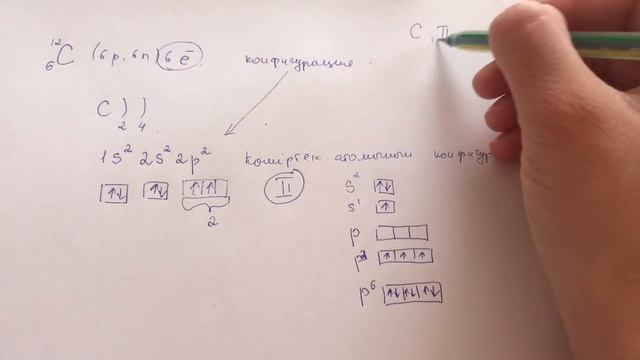 ¹²₆C (6p, 6n) 6e⁻
C, II
конфигурация.
C ) )
2 4
1s² 2s² 2p²
Көміртек атомының конфигур
↑↓ ↑↓ ↑ ↑
2
II
s² ↑↓
s¹ ↑
p
↑ ↑ ↑
p⁶ ↑↓ ↑↓ ↑↓